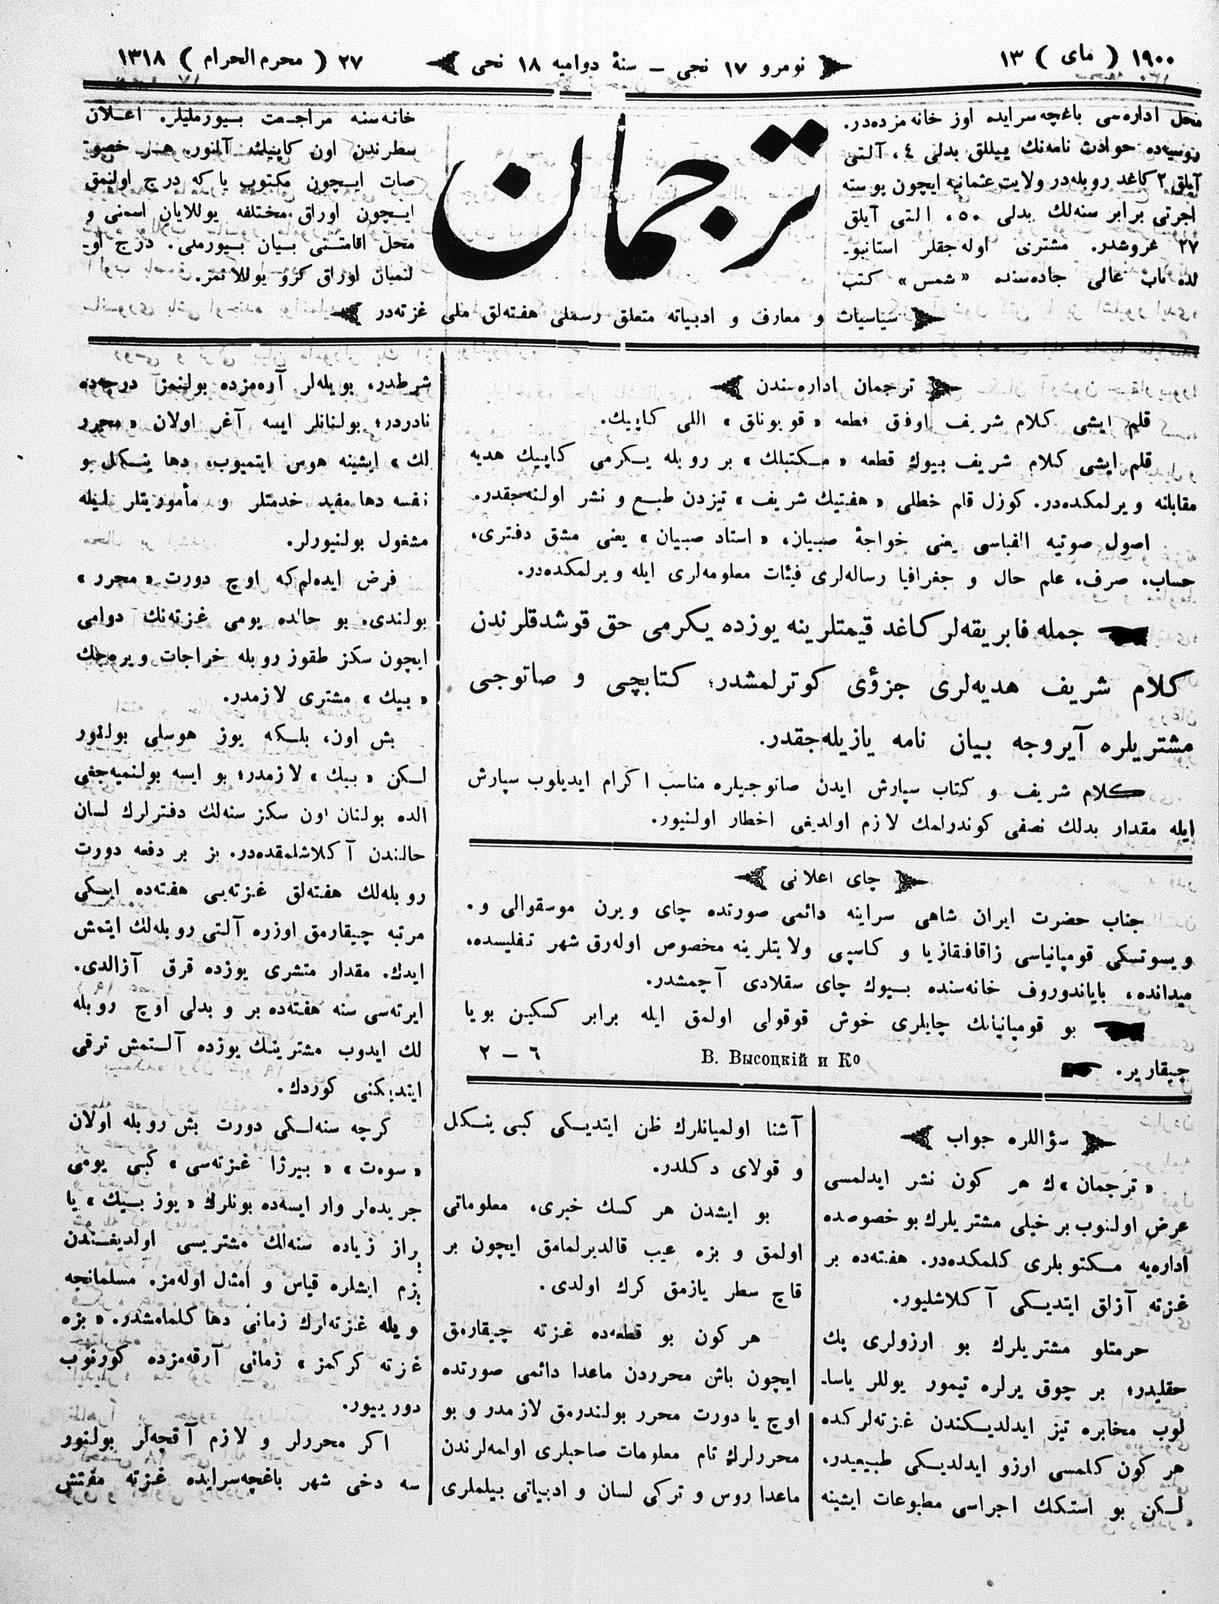 ١٩٠٠ ( مای ) ١٣
نومرو ١٧ نجی – سنهٔ دوامیه ١٨ نجی
٢٧ ( محرم الحرام ) ١٣١٨
محل اداره‌سی باغچه‌سرایده اوز خانه‌مزده‌در.
روسیه‌ده حوادث نامه‌نك ییللق بدلی ٤، آلتی
آیلق ٢ كاغد روبله‌در ولایت عثمانیه ایچون بوسته
اجرتی برابر سنه‌لك بدلی ٥٠، التی آیلق
٢٧ غروشدر. مشتری اوله‌جقلر استانبو‌ـ
لده باب عالی جاده‌سنده «شمس» كتب
ترجمان
خانه‌سنه مراجعت بیورملیلر. اعلان
سطرندن اون كاپیك آلنور. هر خصو‌ـ
صات ایچون مكتوب یا كه درج اولنمق
ایچون اوراق مختلفه یوللایان اسمنی و
محل اقامتنی بیان بیورملی. درج او‌ـ
لنمیان اوراق كرو یوللانمز.
سیاسیات و معارف و ادبیاته متعلق رسملی هفته‌لق ملی غزته‌در
ترجمان اداره‌سندن
قلم ایشی كلام شریف اوفق قطعه «قوبونلق» اللی كاپیك.
قلم ایشی كلام شریف بیوك قطعه «مكتبلك» بر روبله یكرمی كاپیك هدیه
مقابلنه ویرلمكده‌در. كوزل قلم خطلی «هفتیك شریف» تیزدن طبع و نشر اولنه‌جقدر.
اصول صوتیه الفباسی یعنی خواجهٔ صبیان، «استاد صبیان» یعنی مشق دفتری،
حساب، صرف، علم حال و جغرافیا رساله‌لری فیئات معلومه‌لری ایله ویرلمكده‌در.
جمله فابریقه‌لر كاغد قیمتلرینه یوزده یكرمی حق قوشدقلرندن
كلام شریف هدیه‌لری جزؤی كوترلمشدر؛ كتابچی و صاتوجی
مشتریلره آیروجه بیان نامه یازیله‌جقدر.
كلام شریف و كتاب سپارش ایدن صاتوجیلره مناسب اكرام ایدیلوب سپارش
ایله مقدار بدلك نصفی كوندرلمك لازم اولدیغی اخطار اولنیور.
چای اعلانی
جناب حضرت ایران شاهی سراینه دائمی صورتده چای ویرن موسقوالی و.
ویسوتسكی قومپانیاسی زاقافقازیا و كاسپی ولایتلرینه مخصوص اوله‌رق شهر تفلیسده،
میدانده، بایاندوروف خانه‌سنده بیوك چای سقلادی آچمشدر.
بو قومپانیانك چایلری خوش قوقولی اولمق ایله برابر كسكین بویا
چیقاریر.
В. Высоцкій и Ко
٦ – ٢
سؤاللره جواب
«ترجمان»ك هر كون نشر ایدلمسی
عرض اولنوب بر خیلی مشتریلرك بو خصوصده
اداره‌یه مكتوبلری كلمكده‌در. هفته‌ده بر
غزته آزلق ایتدیكی آكلاشلیور.
حرمتلو مشتریلرك بو ارزولری پك
حقلیدر؛ بر چوق یرلره تیمور یوللر یاسا‌ـ
لوب مخابره تیز ایدلدیكندن غزته‌لركده
هر كون كلمسی ارزو ایدلدیكی طبیعیدر،
لكن بو استكك اجراسی مطبوعات ایشینه
آشنا اولمیانلرك ظن ایتدیكی كبی ینكل
و قولای دكلدر.
بو ایشدن هر كسك خبری، معلوماتی
اولمق و بزه عیب قالدیرلمامق ایچون بر
قاچ سطر یازمق كرك اولدی.
هر كون بو قطعه‌ده غزته چیقارمق
ایچون باش محرردن ماعدا دائمی صورتده
اوچ یا دورت محرر بولندرمق لازمدر و بو
محررلرك تام معلومات صاحبلری اولمه‌لرندن
ماعدا روس و تركی لسان و ادبیاتی بیلملری
شرطدر. بویله‌لر آره‌مزده بولنمز درجه‌ده
نادردر؛ بولنانلر ایسه آغر اولان «محرر
لك» ایشینه هوس ایتمیوب، دها ینكل و
نفسه دها مفید خدمتلر و مأموریتلر ایله
مشغول بولنیورلر.
فرض ایده‌لم كه اوچ دورت «محرر»
بولندی. بو حالده یومی غزته‌نك دوامی
ایچون سكز طقوز روبله خراجات ویره‌جك
«بیك» مشتری لازمدر.
بش اون، بلكه یوز هوسلی بولنور
لكن «بیك» لازمدر؛ بو ایسه بولنمیه‌جغی
الده بولنان اون سكز سنه‌لك دفترلرك لسان
حالندن آكلاشلمقده‌در. بز بر دفعه دورت
روبله‌لك هفته‌لق غزته‌یی هفته‌ده ایكی
مرتبه چیقارمق اوزره آلتی روبله‌لك ایتمش
ایدك. مقدار مشتری یوزده قرق آزالدی.
ایرته‌سی سنه هفته‌ده بر و بدلی اوچ روبله
لك ایدوب مشترینك یوزده آلتمش ترقی
ایتدیكنی كوردك.
كرچه سنه‌لكی دورت بش روبله اولان
«سوه‌ت» «بیرزا غزته‌سی» كبی یومی
جریده‌لر وار ایسه‌ده بونلرك «یوز بیك» یا
براز زیاده سنه‌لك مشتریسی اولدیغندن
بزم ایشلره قیاس و امثال اوله‌مز. مسلمانجه
ویله غزته‌لرك زمانی دها كلمامشدر. «بزه
غزته كركمز» زمانی آرقه‌مزده كورنوب
دوریور.
اكر محررلر و لازم آقچه‌لر بولنور
سه دخی شهر باغچه‌سرایده غزته مفتش